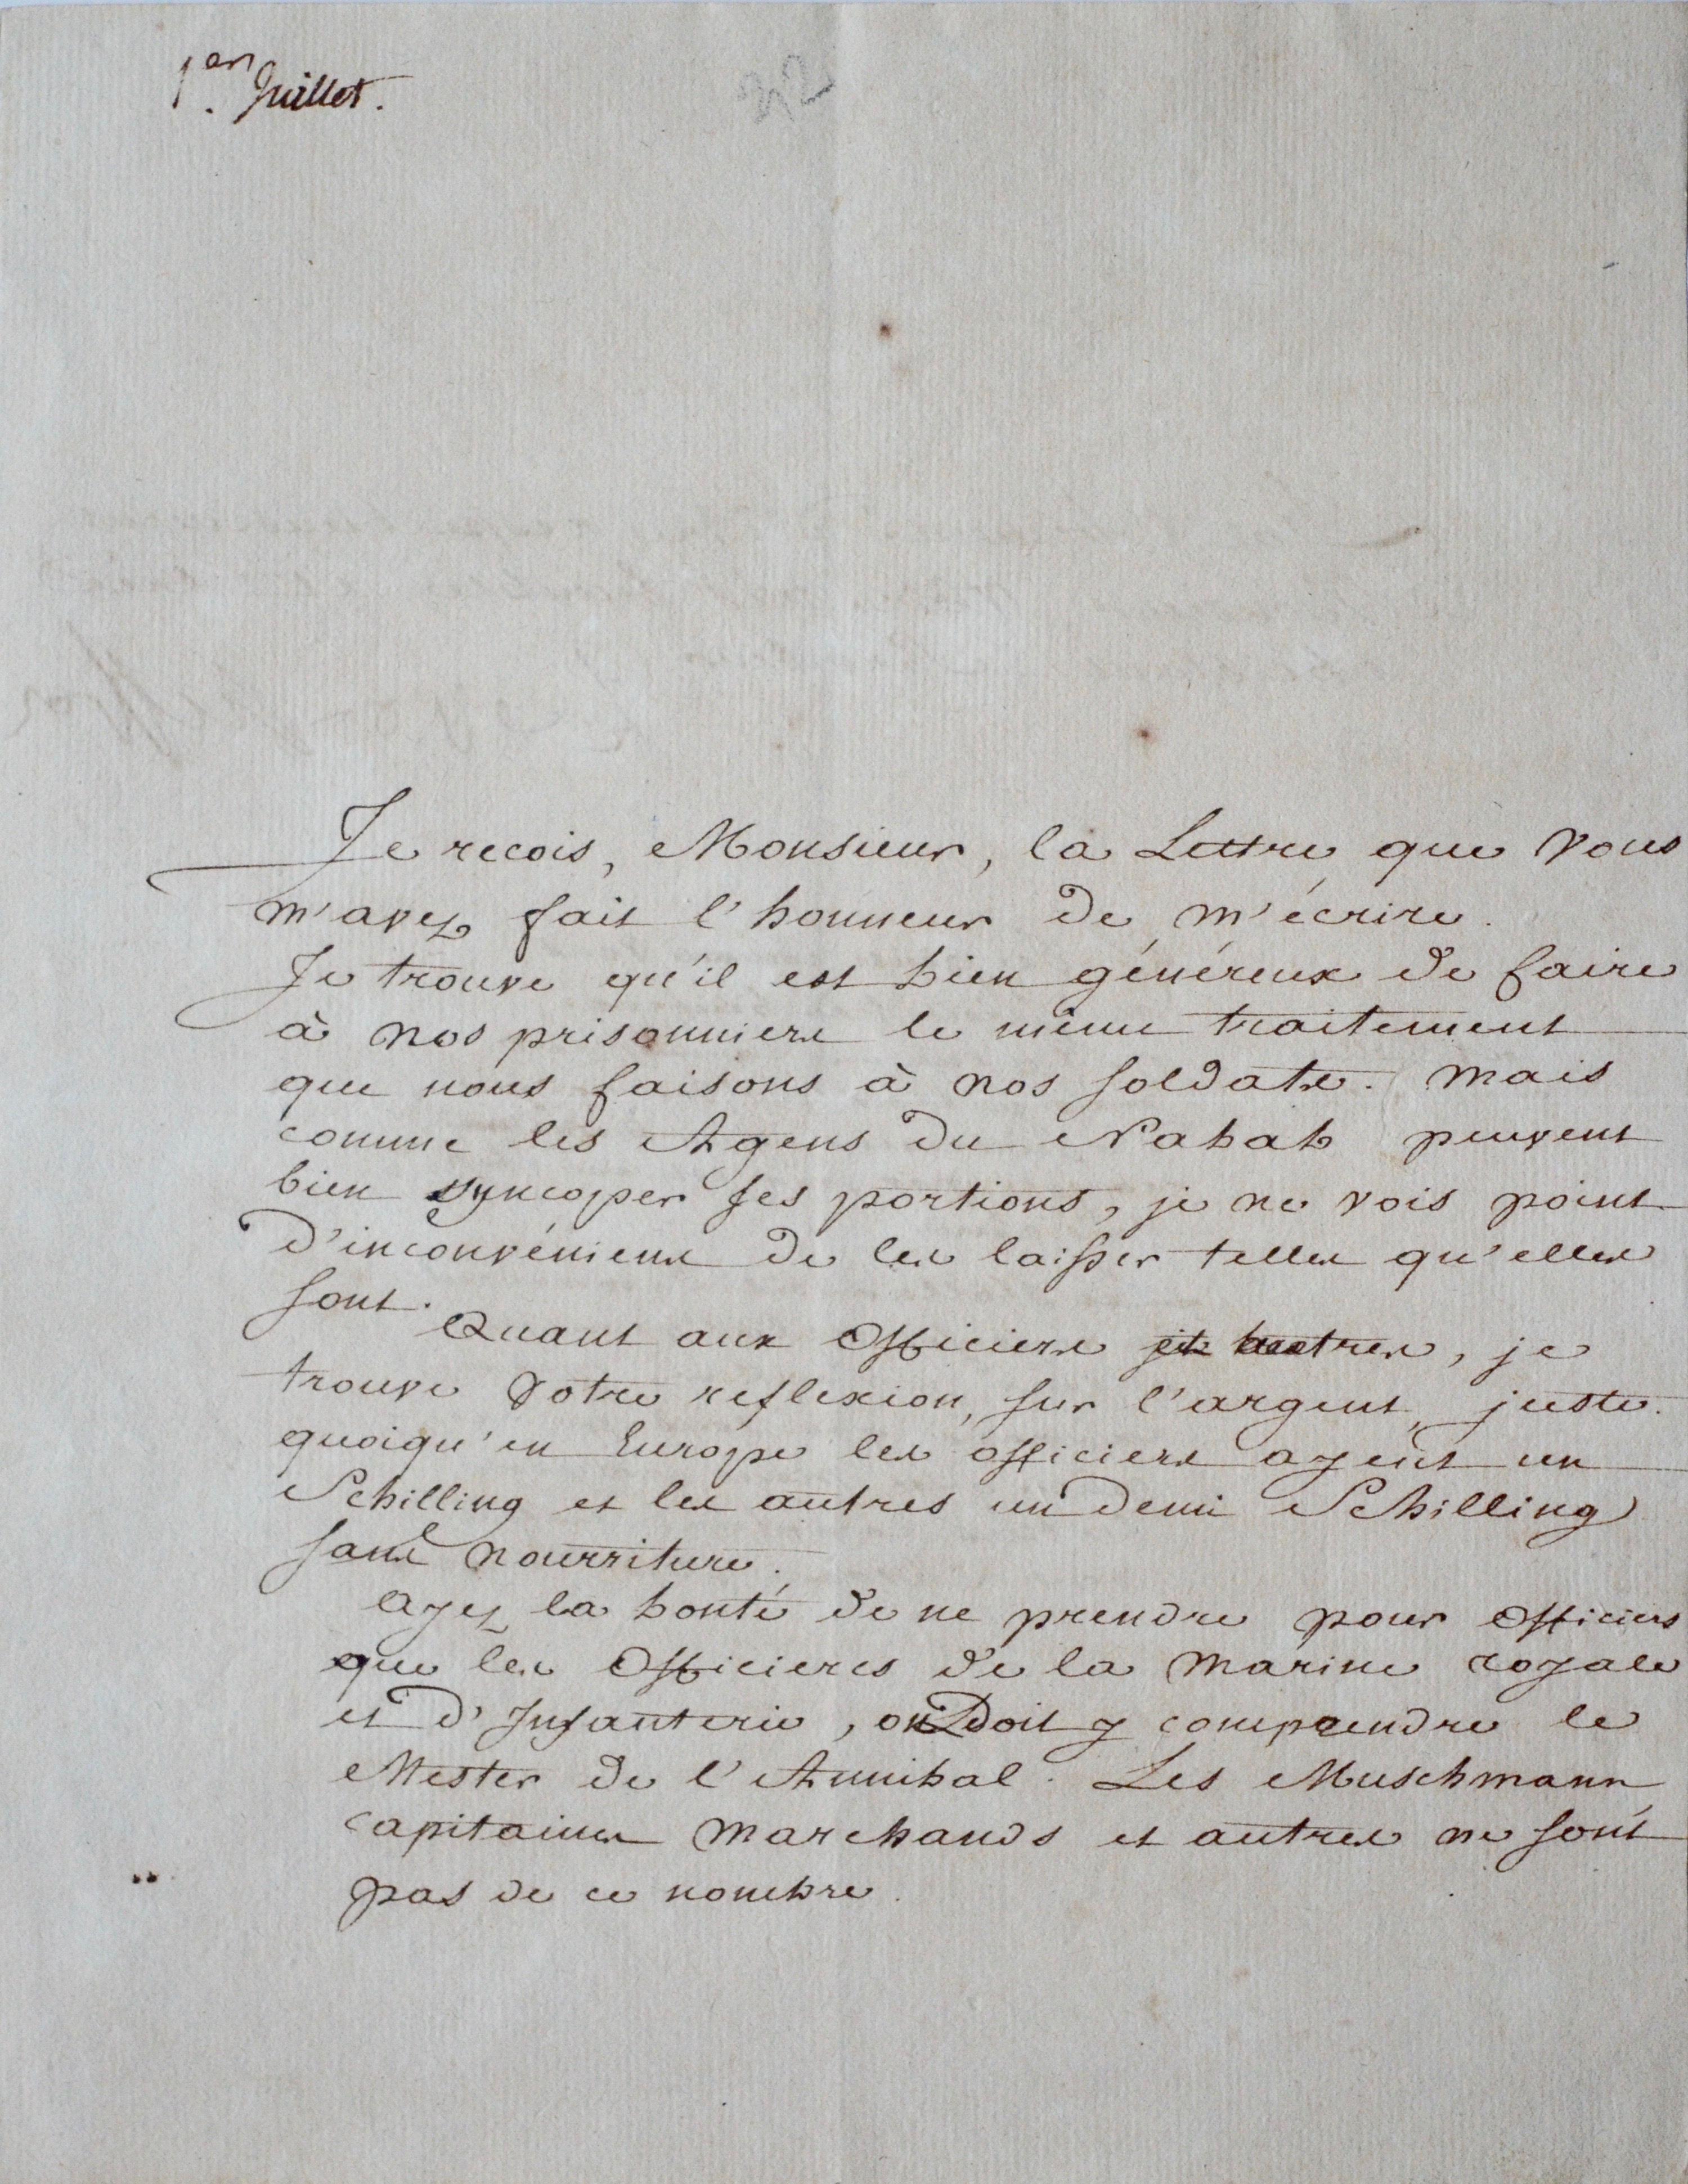 1.er Juillet.
22
Je recois, Monsieur, la Lettre que vous
m'avez fait l'honneur de m'écrire.
Je trouve qu'il est bien généreux de faire
à nos prisonniers le même traitement
que nous faisons à nos soldats. Mais
comme les Agens du Nabab peuvent
bien syncoper ses portions, je ne vois point
d'inconvéniens de les laisser telles qu'elles
sont.
Quant aux Officiers et autres, je
trouve votre reflexion, sur l'argent, juste.
quoiqu'en Europe les officiers ayent un
Schilling et les autres un demi Schilling
sans nourriture.
Ayez la bonté de ne prendre pour Officiers
que les Officieres de la Marine royale
et d'Infanterie, on doit y comprendre le
Mester de l'Annibal. Les Muschmann,
Capitaines marchands et autres ne sont
pas de ce nombre.